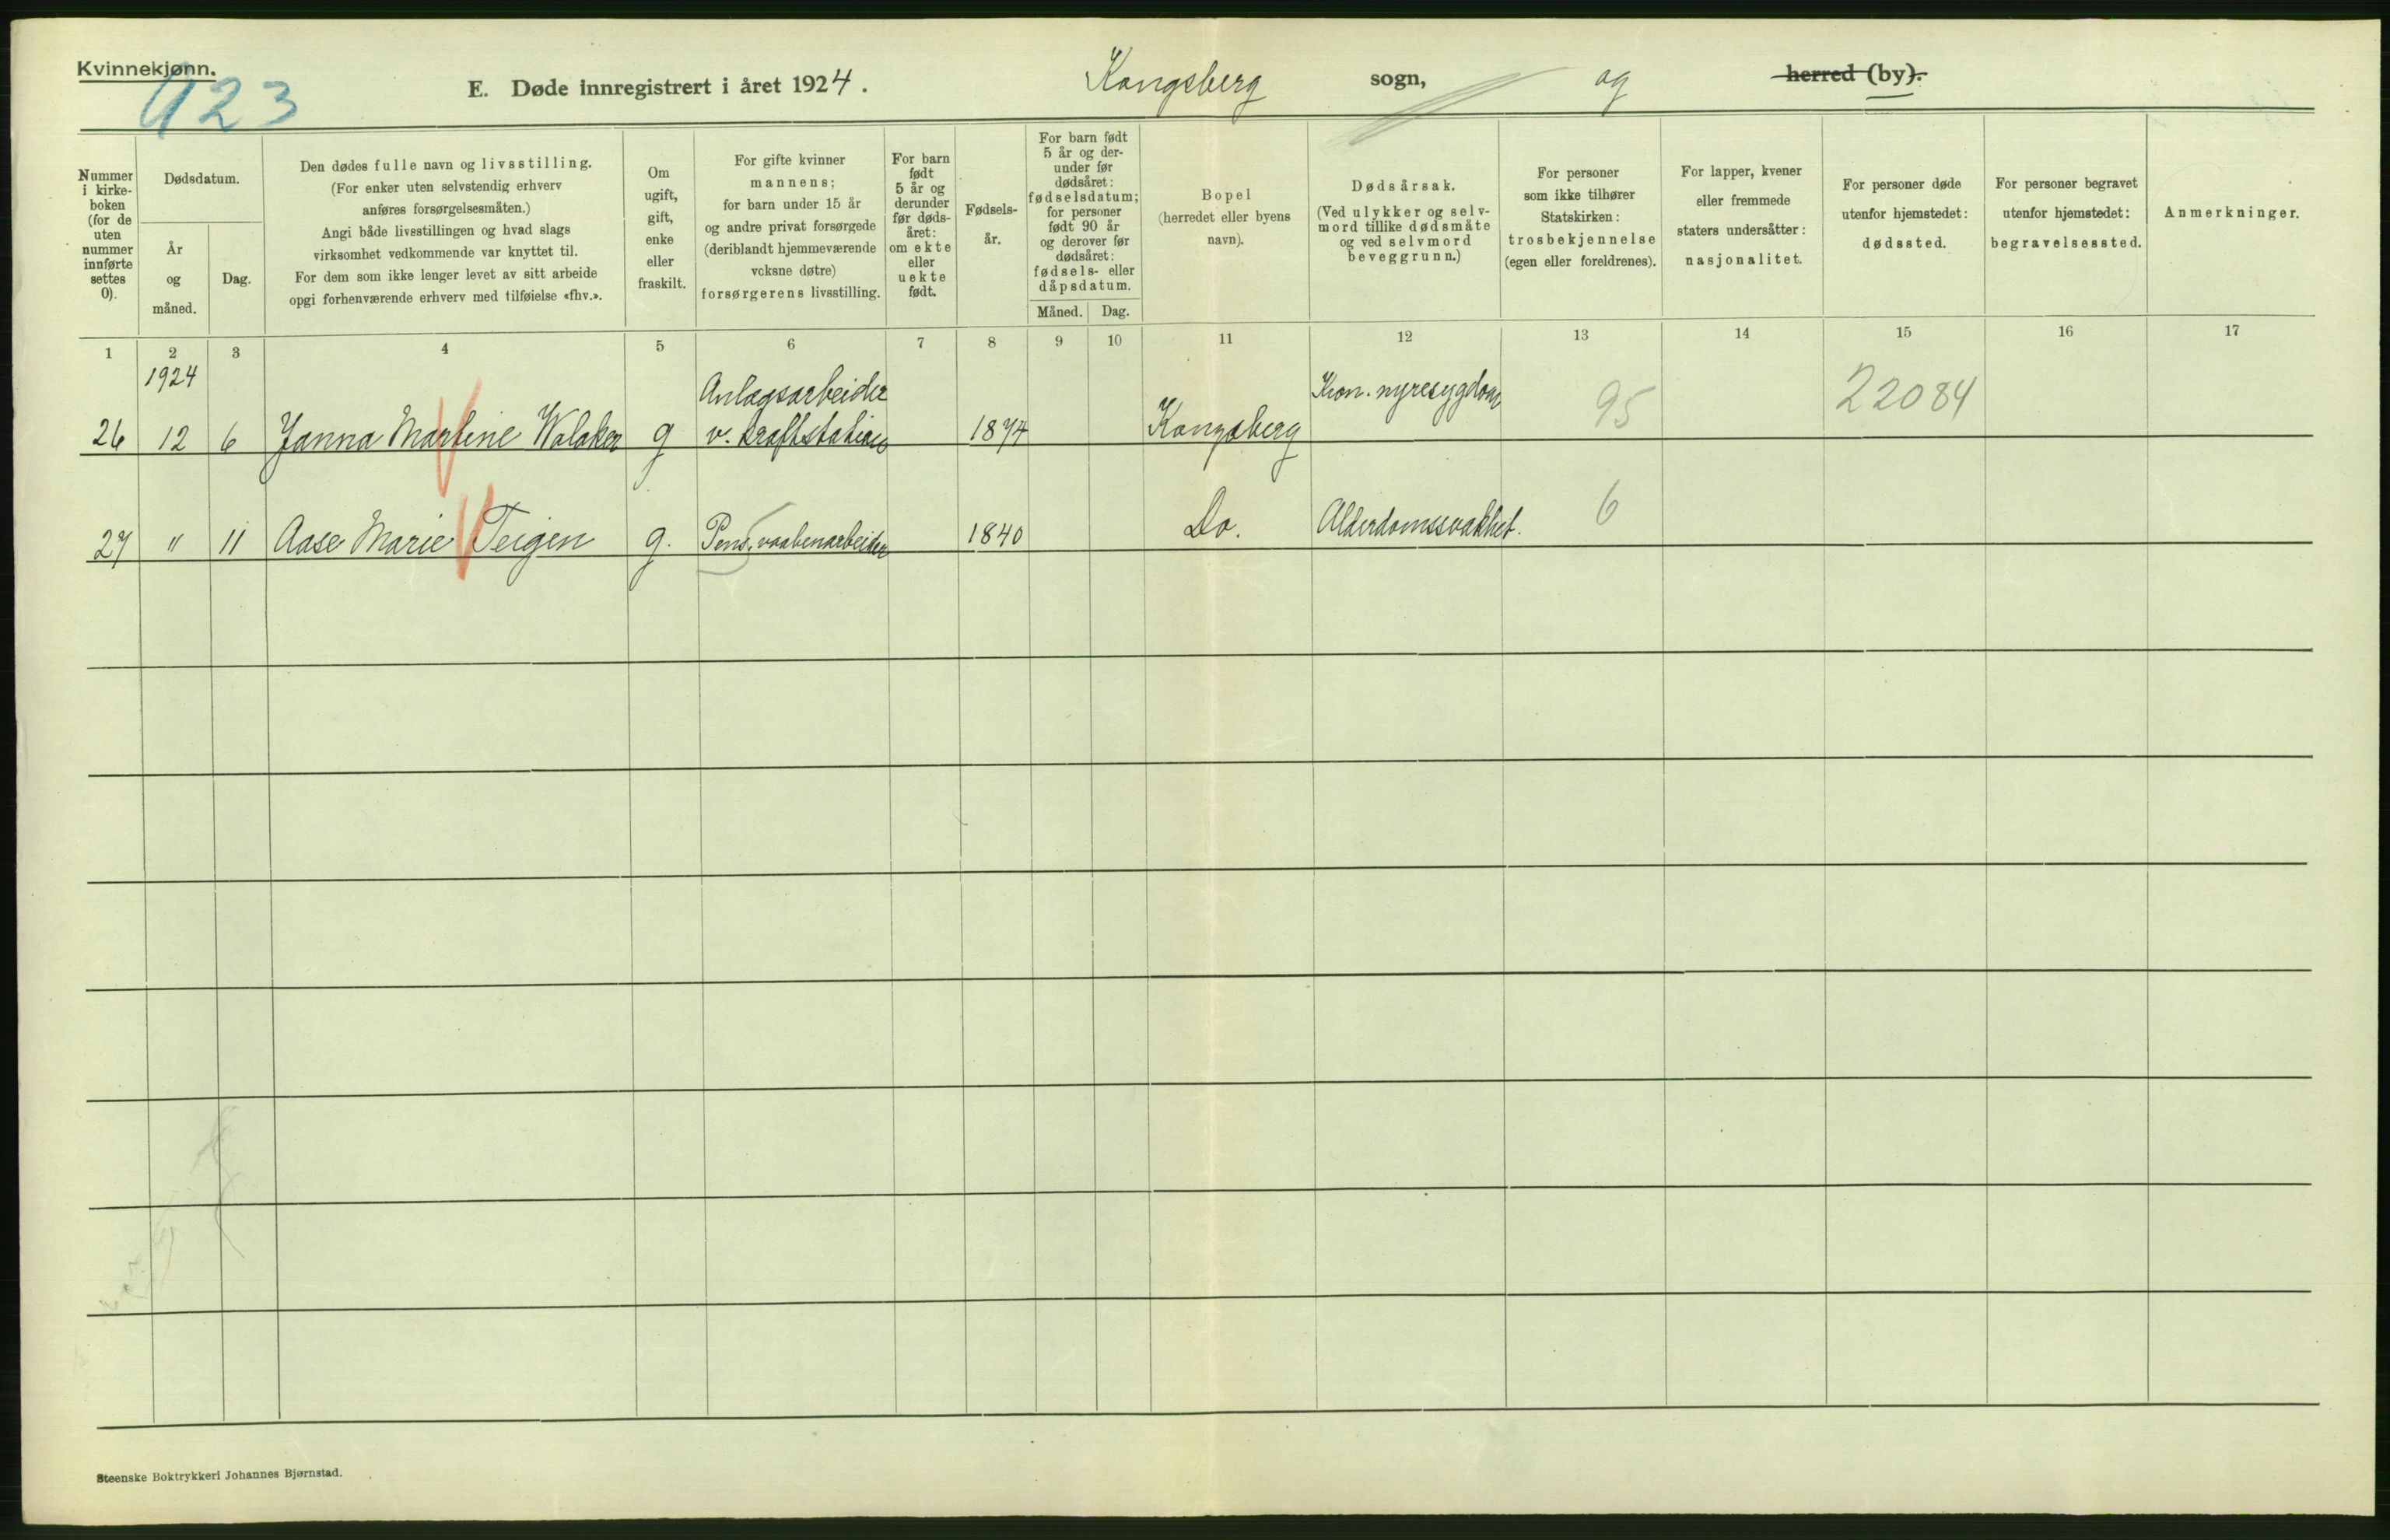 Kvinnekjønn.
923
E. Døde innregistrert i året 1924. Kongsberg sogn, og herred (by).
Nummer i kirke-boken (for de uten nummer innførte settes 0).
Dødsdatum.
År og måned.
Dag.
Den dødes fulle navn og livsstilling.
(For enker uten selvstendig erhverv
anføres forsørgelsesmåten.)
Angi både livsstillingen og hvad slags
virksomhet vedkommende var knyttet til.
For dem som ikke lenger levet av sitt arbeide
opgi forhenværende erhverv med tilføielse «fhv.».
Om
ugift,
gift,
enke
eller
fraskilt.
For gifte kvinner
mannens;
for barn under 15 år
og andre privat forsørgede
(deriblandt hjemmeværende
voksne døtre)
forsørgerens livsstilling.
For barn
født
5 år og
derunder
før døds-
året:
om ekte
eller
uekte
født.
Fødsels-
år.
For barn født
5 år og der-
under før
dødsåret:
fødselsdatum;
for personer
født 90 år
og derover før
dødsåret:
fødsels- eller
dåpsdatum.
Måned. Dag.
Bopel
(herredet eller byens
navn).
Dødsårsak.
(Ved ulykker og selv-
mord tillike dødsmåte
og ved selvmord
beveggrunn.)
For personer
som ikke tilhører
Statskirken:
trosbekjennelse
(egen eller foreldrenes).
For lapper, kvener
eller fremmede
staters undersåtter:
nasjonalitet.
For personer døde
utenfor hjemstedet:
dødssted.
For personer begravet
utenfor hjemstedet:
begravelsessted.
Anmerkninger.
1 2 3 4 5 6 7 8 9 10 11 12 13 14 15 16 17
1924
26 12 6 Janna Martine Walaker g Anlægsarbeider v. kraftstation 1874 Kongsberg Kron. nyresygdom 95 22084
27 " 11 Aase Marie Teigen g. Pens. vaabenarbeider 1840 Do. Alderdomssvakhet. 6
Steenske Boktrykkeri Johannes Bjørnstad.